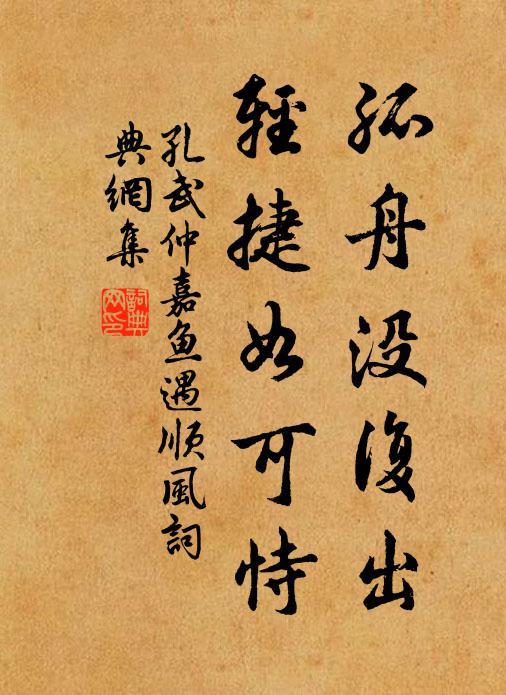 孤舟没復出
輕捷如可恃
孔武仲嘉魚遇順風詞
典網集
詞典
網印